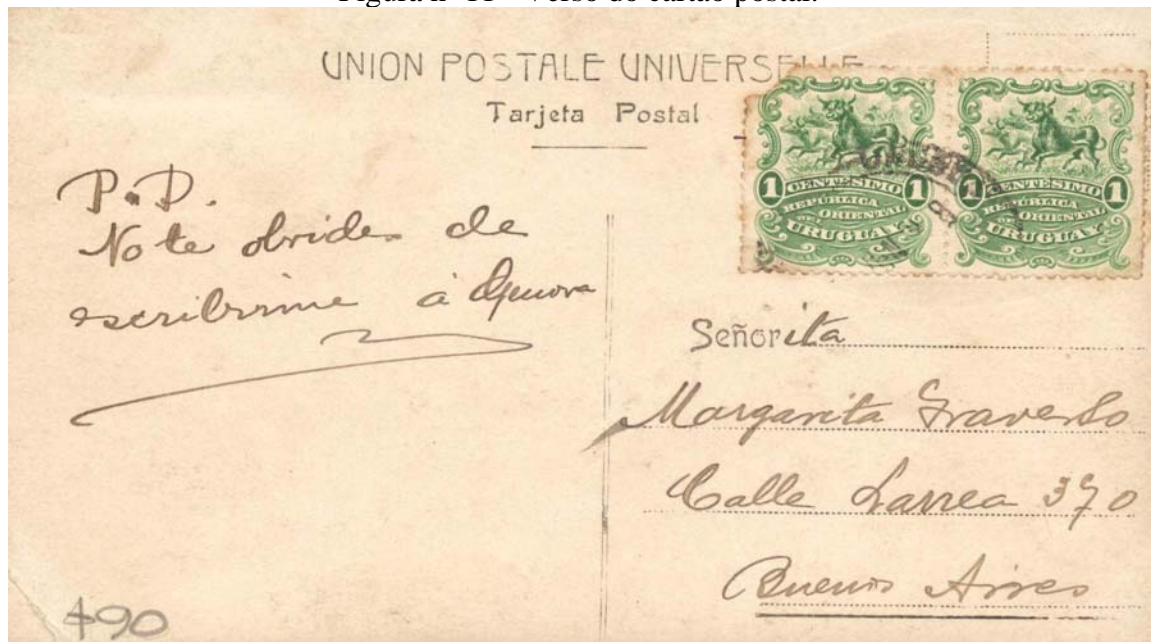 Figura nº 11 - Verso do cartão postal.
UNION POSTALE UNIVERSELLE
Tarjeta Postal
1 CENTÉSIMO 1
REPÚBLICA
ORIENTAL
DEL
URUGUAY
1 CENTÉSIMO 1
REPÚBLICA
ORIENTAL
DEL
URUGUAY
P.D.
No te olvides de
escribirme á Genova
Señorita
Margarita Traverso
Calle Larrea 370
Buenos Aires
490